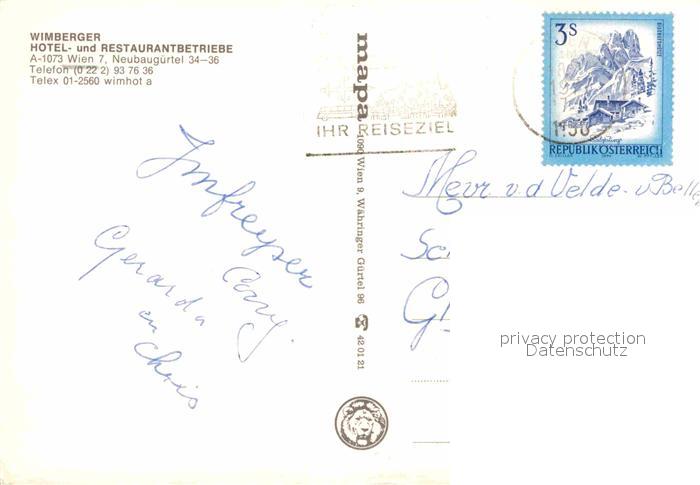 WIMBERGER
HOTEL- und RESTAURANTBETRIEBE
A-1073 Wien 7, Neubaugürtel 34—36
Telefon (0 22 2) 93 76 36
Telex 01-2560 wimhot a
Gerarda
en Chris
mapa 1090 Wien 9, Währinger Gürtel 96 ☎ 42 01 21
IHR REISEZIEL
3s
REPUBLIK ÖSTERREICH
1150
Mevr v.d Velde-v Belle
privacy protection
Datenschutz